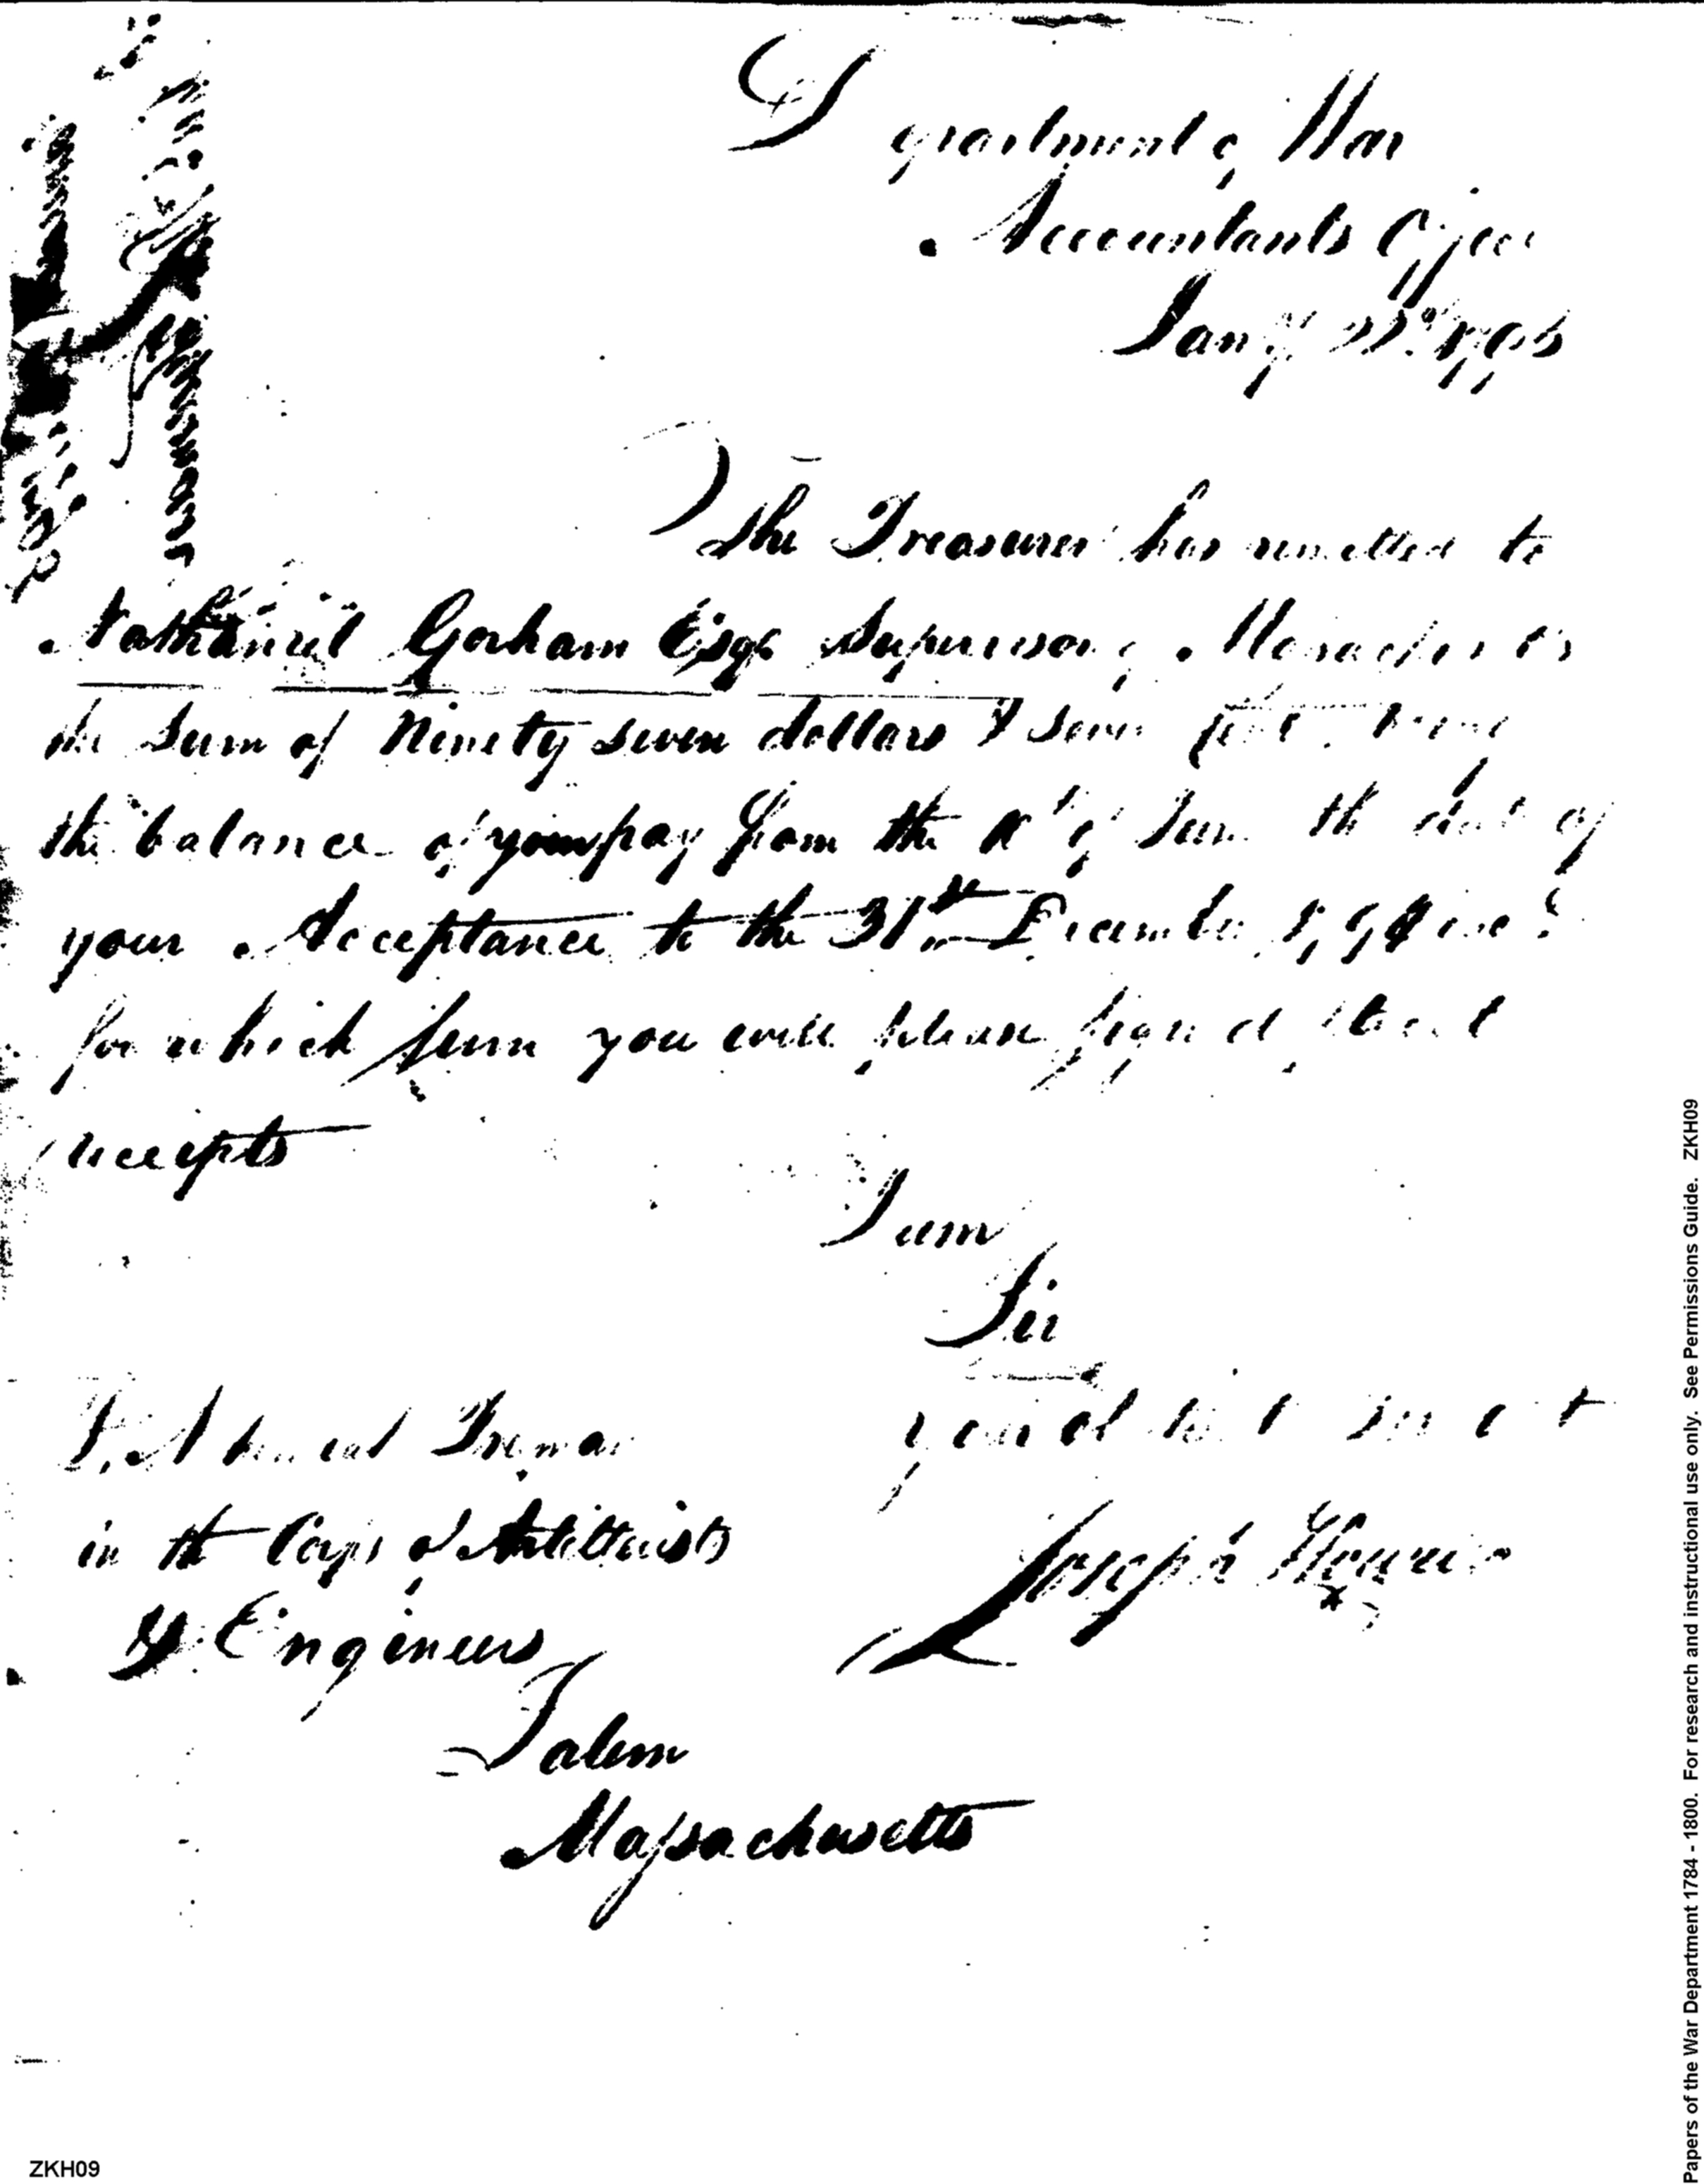 Department of War
Accountants Office
Jany 1795
The Treasurer has remitted to
Nathaniel Gorham Esqr Supervisor of Massachusetts
the Sum of Ninety seven dollars & seven Cents being
the balance of your pay from the of June the date of
your Acceptance to the 31st December 1794 incl
for which sum you will please sign duplicate
receipts
I am
Sir
your obt
Freman
in the Corps of Artillerists
& Engineers
Joseph Howell
Salem
Massachusetts
ZKH09
Papers of the War Department 1784 - 1800. For research and instructional use only. See Permissions Guide. ZKH09